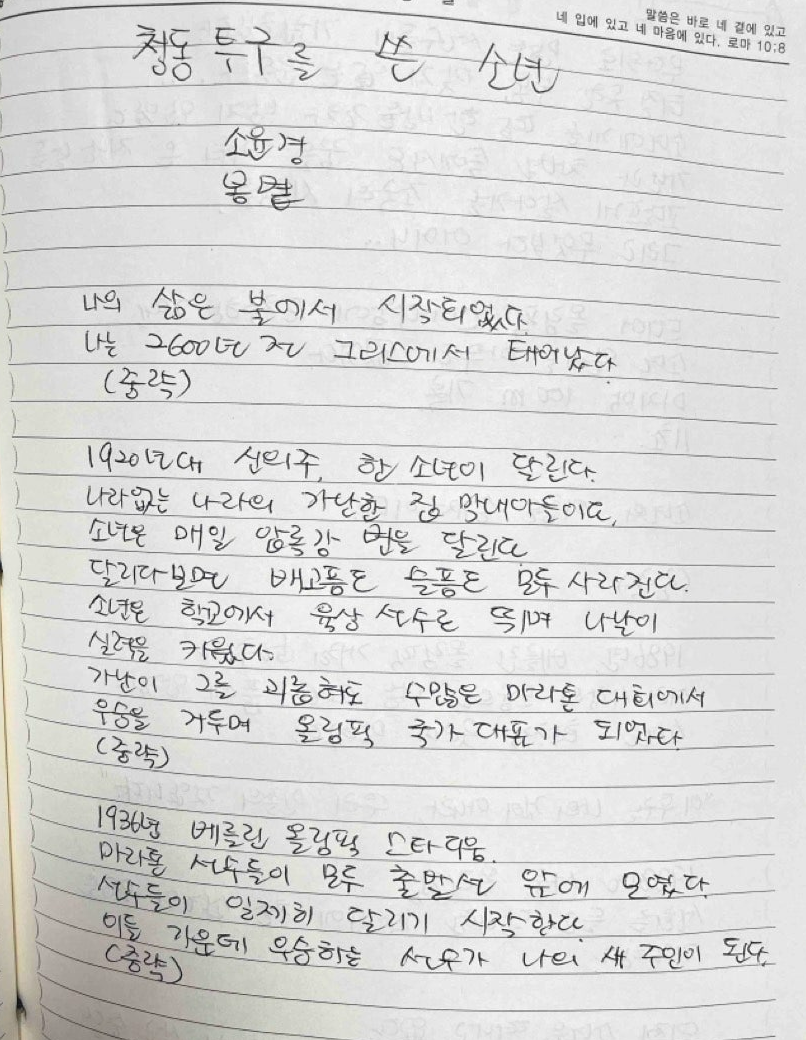 말씀은 바로 네 곁에 있고
네 입에 있고 네 마음에 있다. 로마 10:8
청동 투구를 쓴 소년
소윤경
봄볕
나의 삶은 불에서 시작되었다.
나는 2600년 전 그리스에서 태어났다.
(중략)
1920년대 신의주, 한 소년이 달린다.
나라없는 나라의 가난한 집 막내아들이다.
소년은 매일 압록강 변을 달린다.
달리다보면 배고픔도 슬픔도 모두 사라진다.
소년은 학교에서 육상 선수로 뛰며 나날이
실력을 키웠다.
가난이 그를 괴롭혀도 수많은 마라톤 대회에서
우승을 거두며 올림픽 국가대표가 되었다.
(중략)
1936년 베를린 올림픽 스타디움.
마라톤 선수들이 모두 출발선 앞에 모였다.
선수들이 일제히 달리기 시작한다.
이들 가운데 우승하는 선수가 나의 새 주인이 된다.
(중략)